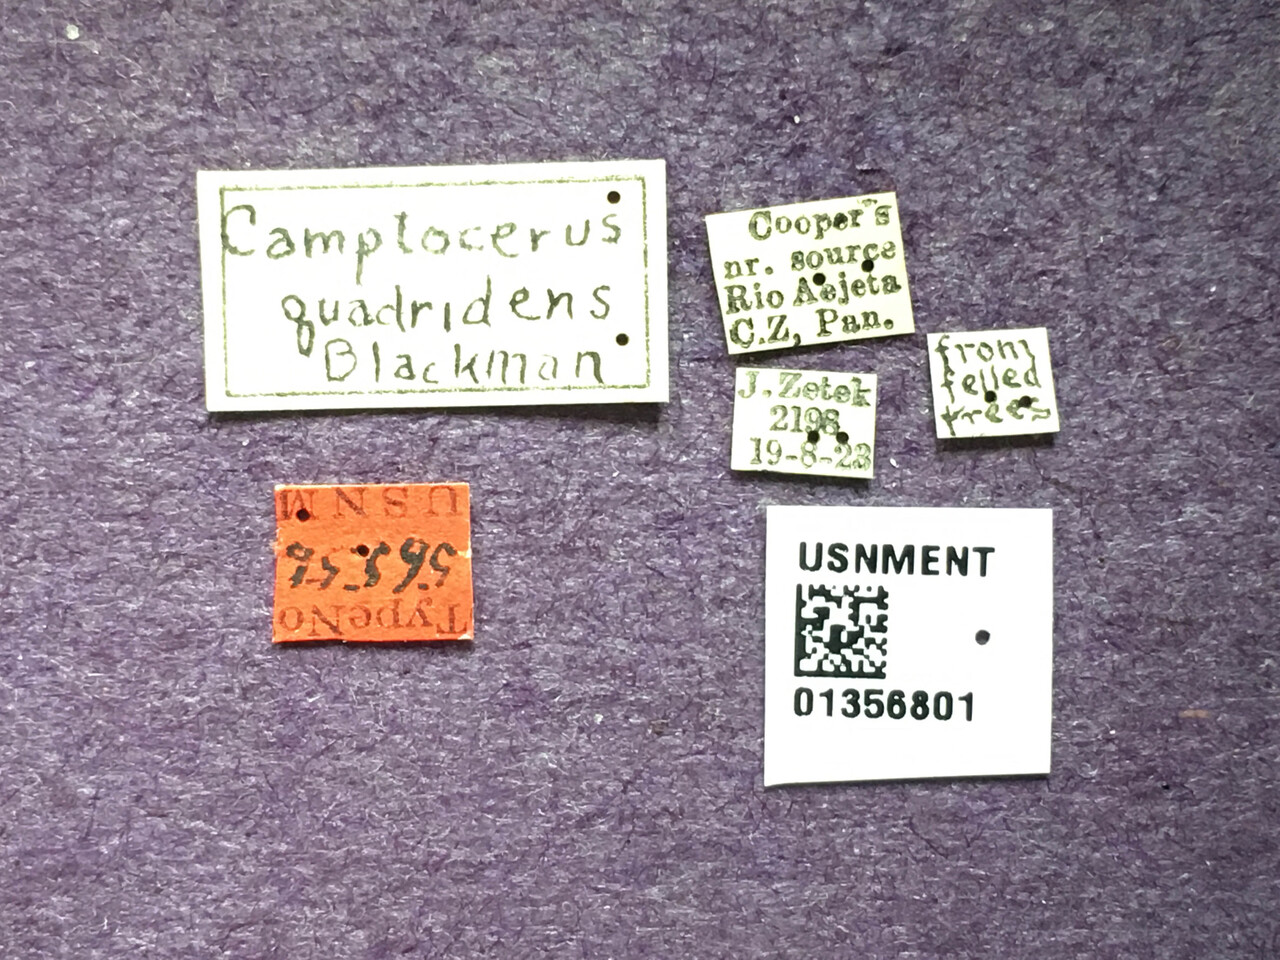 Camptocerus
quadridens
Blackman
Cooper's
nr. source
Rio Aejeta
C.Z, Pan.
J. Zetek
2198
19-8-23
from
felled
trees
TypeNo
USNM
USNMENT
01356801